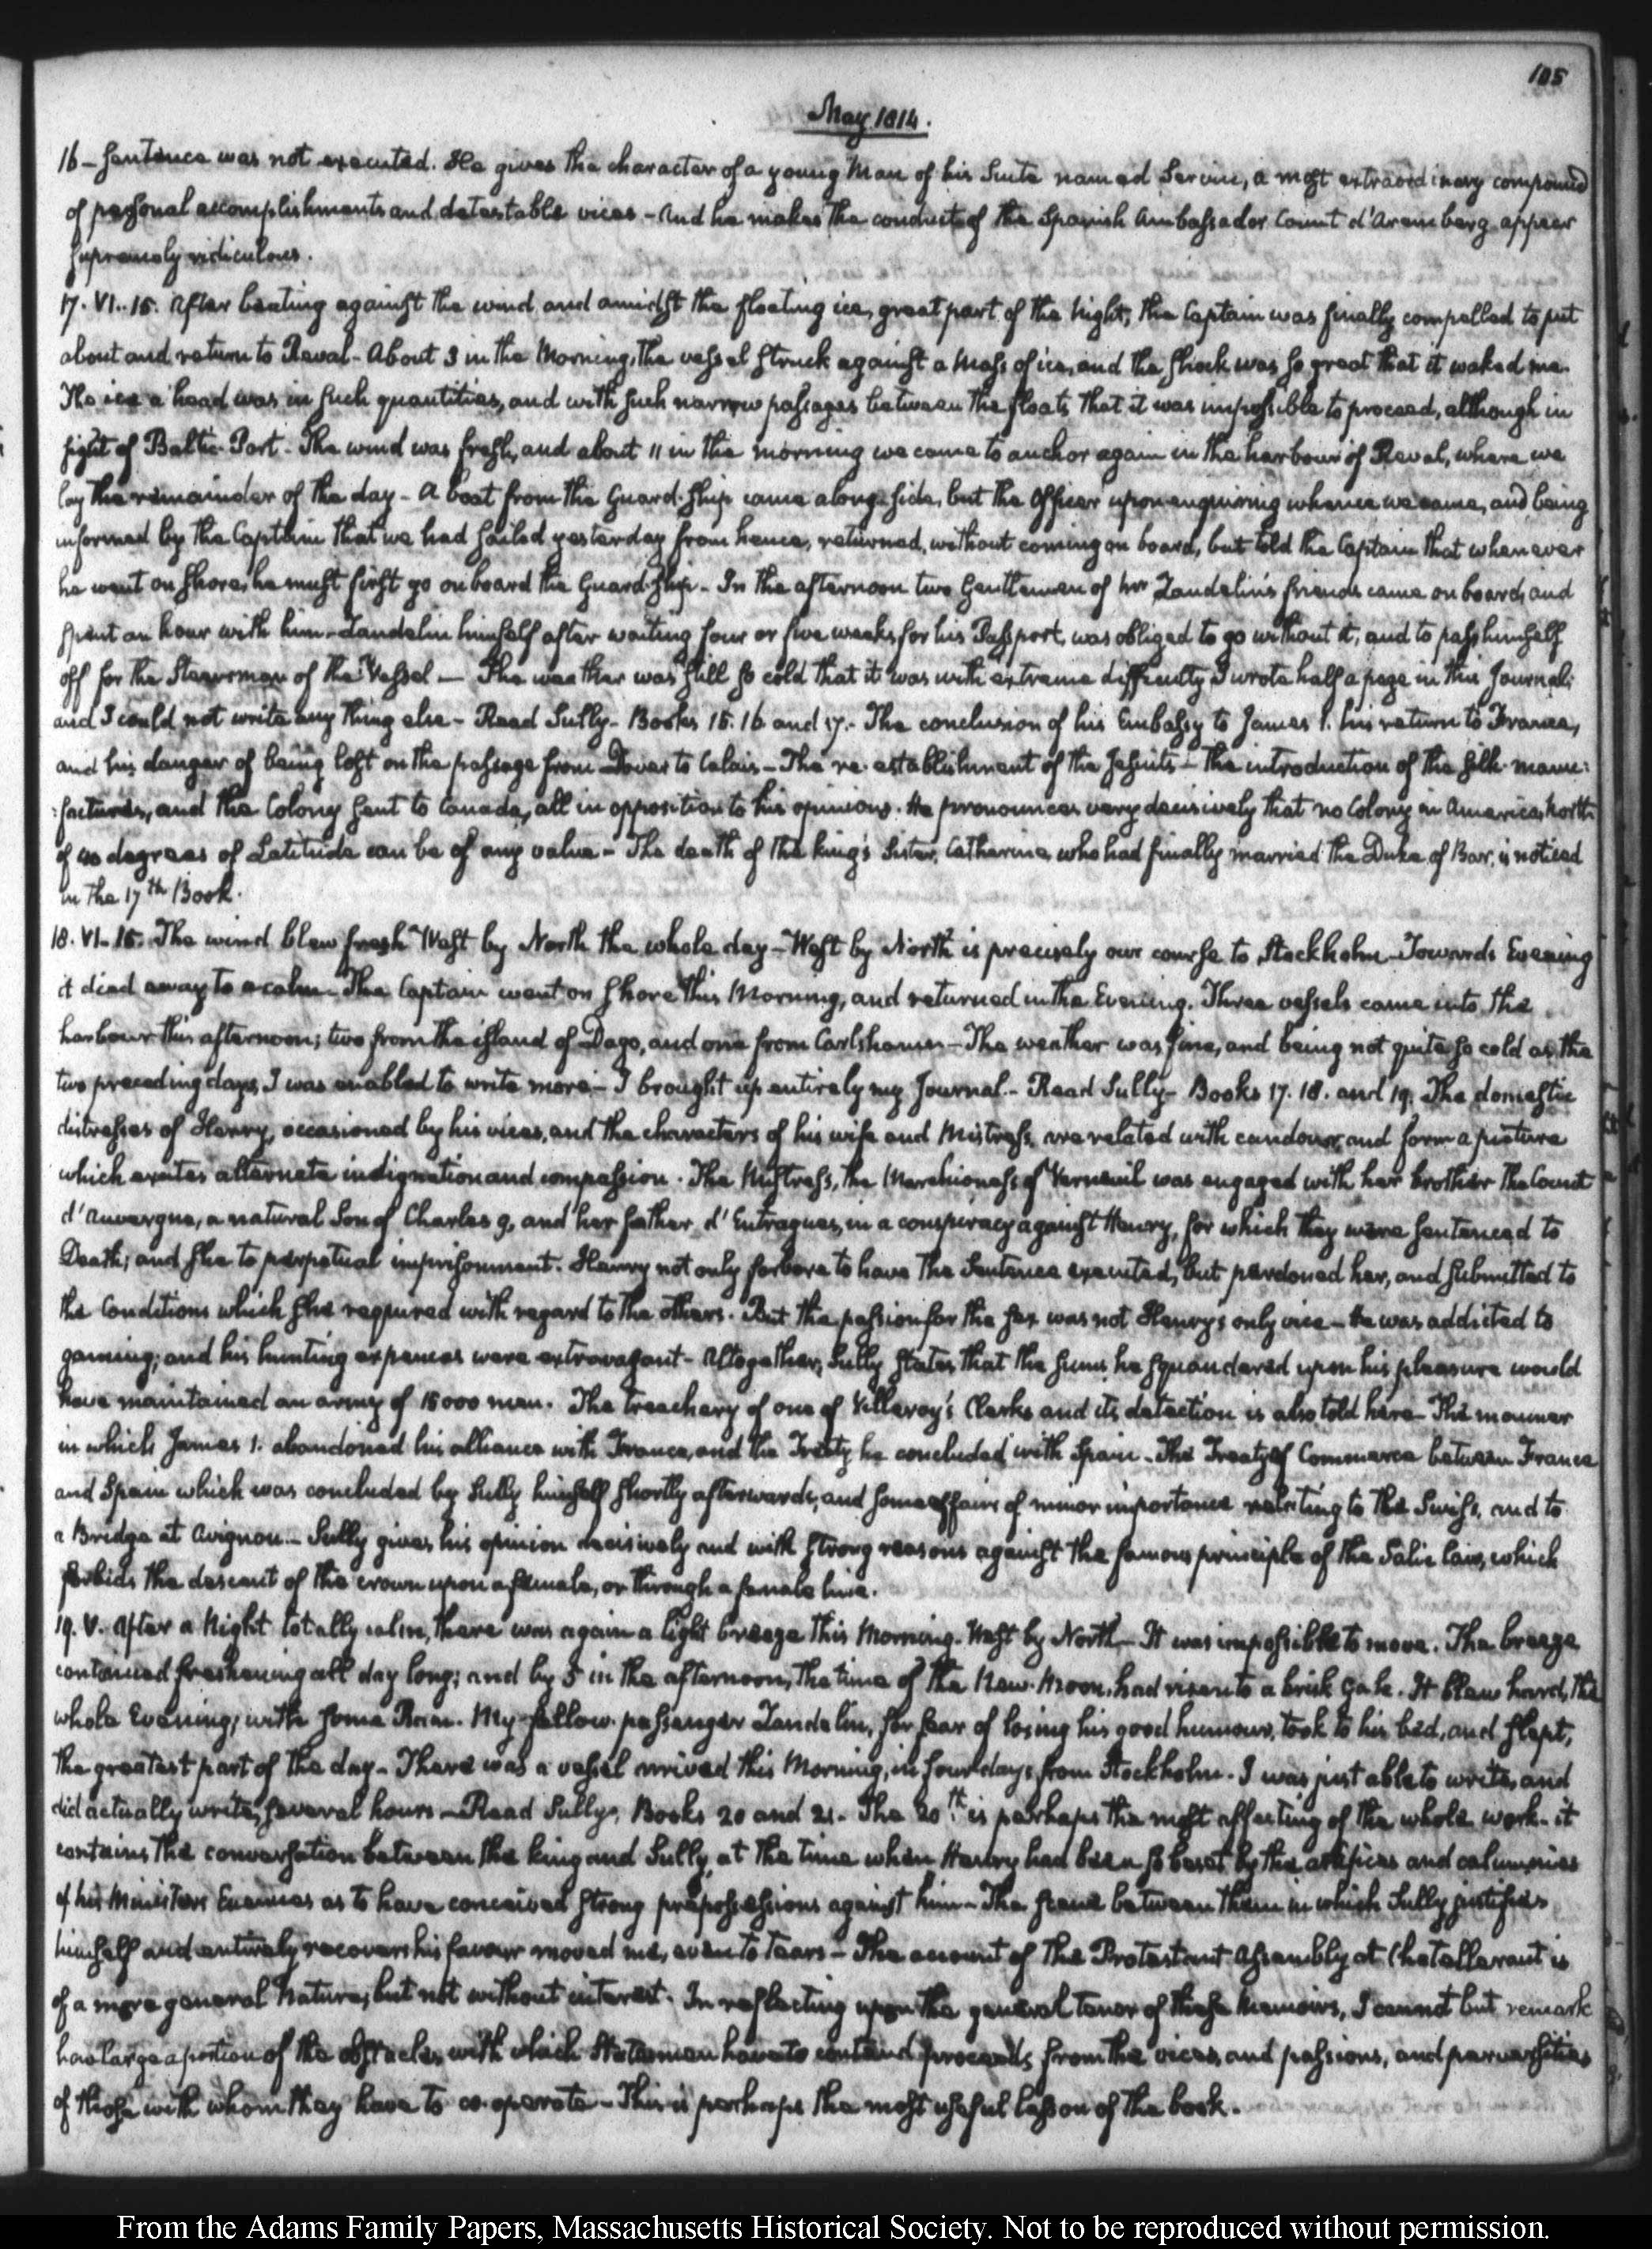 105
May 1814.
16 — Sentence was not executed. He gives the character of a young Man of his Suite named Servin, a most extraordinary compound
of personal accomplishments and detestable vices — And he makes the conduct of the Spanish Ambassador Count d'Aremberg appear
supremely ridiculous.
17. VI. 15. After beating against the wind and amidst the floating ice, great part of the Night, the Captain was finally compelled to put
about and return to Reval — About 3 in the Morning, the vessel struck against a Mass of ice, and the shock was so great that it waked me.
The ice a'head was in such quantities, and with such narrow passages between the floats that it was impossible to proceed, although in
sight of Baltic-Port — The wind was fresh, and about 11 in the morning we came to anchor again in the harbour of Reval, where we
lay the remainder of the day — A boat from the Guard-ship came along-side, but the Officer upon enquiring whence we came, and being
informed by the Captain that we had sailed yesterday from hence, returned, without coming on board, but told the Captain that whenever
he went on shore, he must first go on board the Guard-ship — In the afternoon two Gentlemen of Mr Zandelin's friends came on board, and
spent an hour with him — Zandelin himself after waiting four or five weeks for his Passport, was obliged to go without it, and to pass himself
off for the Steersman of the Vessel — The weather was still so cold that it was with extreme difficulty I wrote half a page in this Journal;
and I could not write any thing else — Read Sully — Books 15. 16 and 17. — The conclusion of his Embassy to James 1. his return to France,
and his danger of being lost on the passage from Dover to Calais — The re-establishment of the Jesuits — the introduction of the silk-manu:
:factures, and the Colony sent to Canada, all in opposition to his opinions. He pronounces very decisively that no Colony in America, North
of 40 degrees of Latitude can be of any value — The death of the king's Sister, Catharine, who had finally married the Duke of Bar, is noticed
in the 17th Book.
18. VI. 15. The wind blew fresh West by North the whole day — West by North is precisely our course to Stockholm — Towards Evening
it died away to a calm — The Captain went on shore this Morning, and returned in the Evening. Three vessels came into the
harbour this afternoon; two from the island of Dago, and one from Carlshamn — The weather was fine, and being not quite so cold as the
two preceding days, I was enabled to write more — I brought up entirely my Journal — Read Sully — Books 17. 18. and 19. The domestic
distresses of Henry, occasioned by his vices, and the characters of his wife and Mistress, are related with candour, and form a picture
which excites alternate indignation and compassion. The Mistress, the Marchioness of Verneuil was engaged with her brother the Count
d'Auvergne, a natural Son of Charles 9, and her father, d'Entragues, in a conspiracy against Henry, for which they were sentenced to
Death; and she to perpetual imprisonment. Henry not only forbore to have the Sentence executed, but pardoned her, and submitted to
the Conditions which she required with regard to the others. But the passion for the sex was not Henry's only vice — He was addicted to
gaming; and his hunting expences were extravagant — Altogether, Sully states, that the sums he squandered upon his pleasure would
have maintained an army of 15000 men. The treachery of one of Villeroy's Clerks and its detection is also told here — The manner
in which James 1. abandoned his alliance with France, and the Treaty he concluded with Spain — The Treaty of Commerce between France
and Spain which was concluded by Sully himself shortly afterwards, and some affairs of minor importance relating to the Swiss, and to
a Bridge at Avignon — Sully gives his opinion decisively and with strong reasons against the famous principle of the Salic law, which
forbids the descent of the crown upon a female, or through a female line.
19. V. After a Night totally calm, there was again a light breeze this Morning. West by North — It was impossible to move. The breeze
continued freshening all day long; and by 5 in the afternoon, the time of the New-Moon, had risen to a brisk Gale. It blew hard, the
whole Evening; with some Rain. My fellow-passenger Zandelin, for fear of losing his good humour, took to his bed, and slept,
the greatest part of the day — There was a vessel arrived this Morning, in four days from Stockholm. I was just able to write, and
did actually write, several hours — Read Sully, Books 20 and 21. The 20th is perhaps the most affecting of the whole work — it
contains the conversation between the king and Sully, at the time when Henry had been so beset by the artifices and calumnies
of his Ministers Enemies as to have conceived strong prepossessions against him — The scene between them in which Sully justifies
himself and entirely recovers his favour moved me, even to tears — The account of the Protestant Assembly at Chatellerault is
of a more general Nature, but not without interest. In reflecting upon the general tenor of these Memoirs, I cannot but remark
how large a portion of the obstacles with which Statesmen have to contend proceeds from the vices, and passions, and perversities
of those with whom they have to co-operate — This is perhaps the most useful lesson of the book.
From the Adams Family Papers, Massachusetts Historical Society. Not to be reproduced without permission.